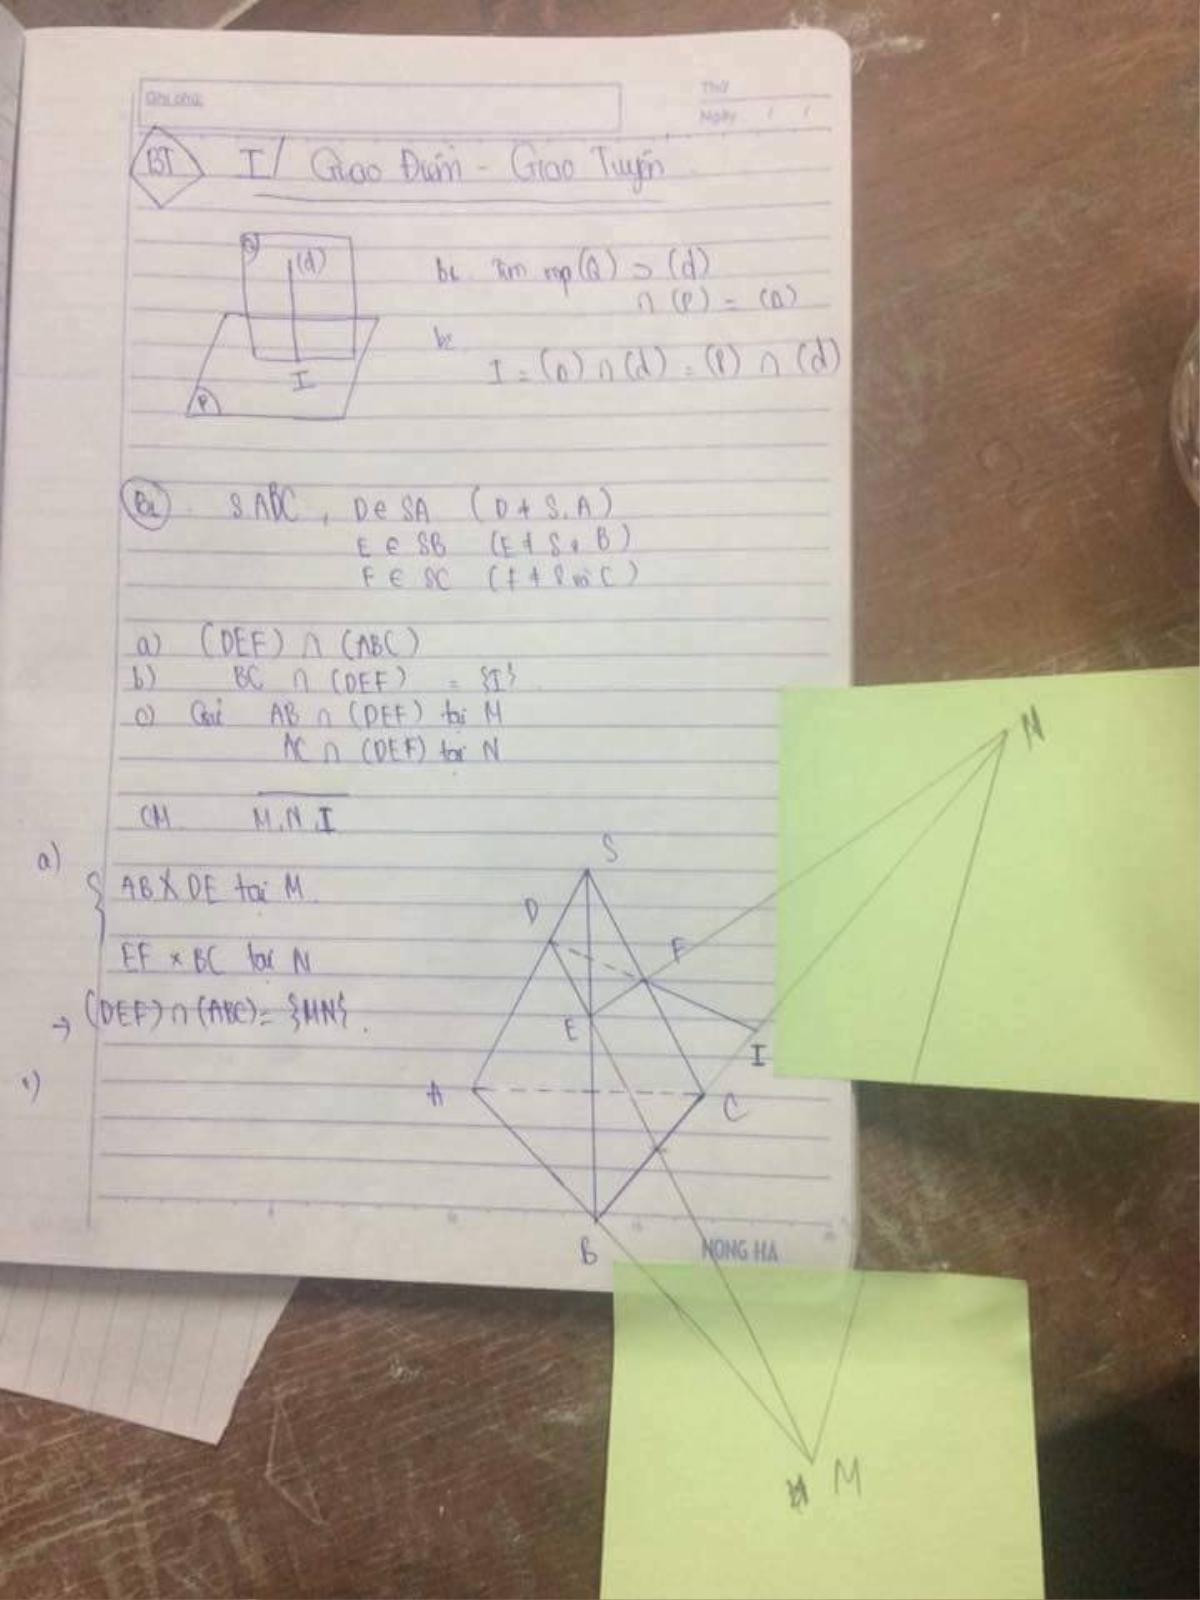 Ghi chú:
Thứ
Ngày / /
BT I/ Giao Điểm - Giao Tuyến
Q (d)
b1 Tìm mp(Q) ⊃ (d)
∩ (P) = (a)
b2
I = (a) ∩ (d) = (P) ∩ (d)
I
P
B1 SABC, D ∈ SA (D ≠ S, A)
E ∈ SB (E ≠ S, B)
F ∈ SC (F ≠ S và C)
a) (DEF) ∩ (ABC)
b) BC ∩ (DEF) = {I}
c) Gọi AB ∩ (DEF) tại M
AC ∩ (DEF) tại N
CM M, N, I
a)
AB X DE tại M.
EF x BC tại N
→ (DEF) ∩ (ABC) = {MN}.
S
D
F
E
I
A
C
B
HONG HA
N
M